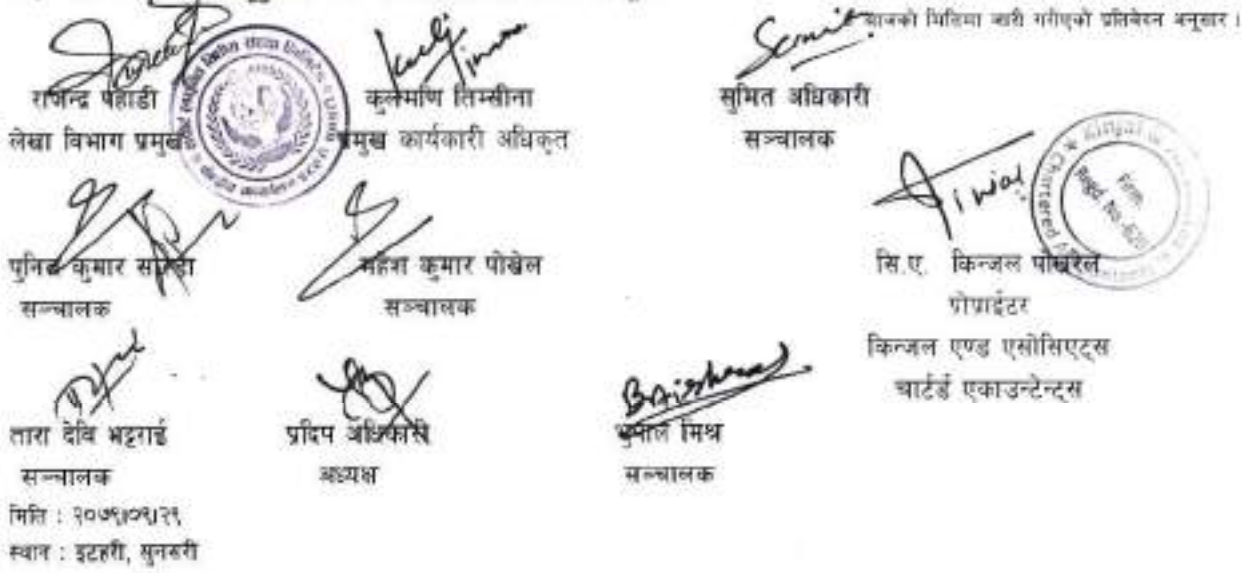 आजको मितिमा जारी गरीएको प्रतिवेदन अनुसार ।
राजेन्द्र पहाडी
लेखा विभाग प्रमुख
कुलमणि तिम्सीना
प्रमुख कार्यकारी अधिकृत
सुमित अधिकारी
सञ्चालक
पुनित कुमार
सञ्चालक
महेश कुमार पोखेल
सञ्चालक
सि.ए. किन्जल पोखरेल
प्रोप्राईटर
किन्जल एण्ड एसोसिएट्स
चार्टर्ड एकाउन्टेन्ट्स
तारा देवि भट्टराई
सञ्चालक
प्रदिप अधिकारी
अध्यक्ष
मिश्र
सञ्चालक
मिति : २०७९।०९।२९
स्थान : इटहरी, सुनसरी